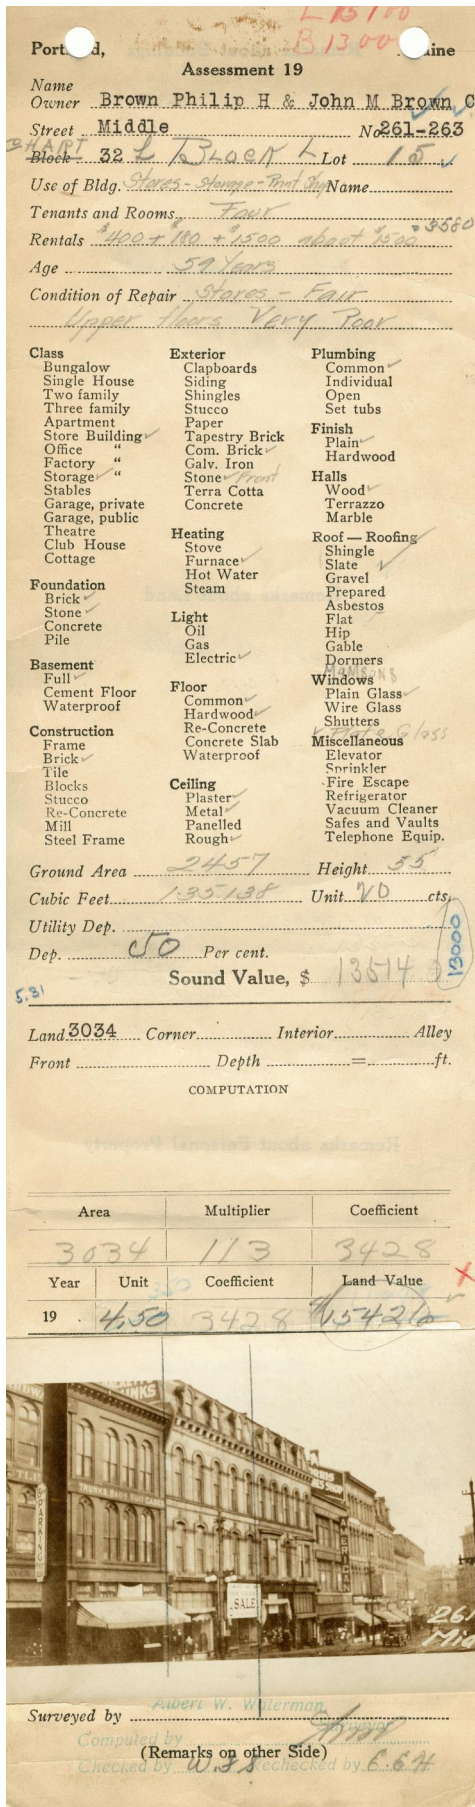 L 13100
B 13000
Portland, Maine
Assessment 19
Name
Owner Brown Philip H & John M Brown C
Street Middle No 261-263
CHART
Block 32 L BLOCK L Lot 15
Use of Bldg. Stores - Storage - Print Shop Name
Tenants and Rooms Four
Rentals $400 + $180 + $1500 about $1500 = 3580
Age 59 Years
Condition of Repair Stores - Fair
Upper floors Very Poor
Class
Bungalow
Single House
Two family
Three family
Apartment
Store Building ✓
Office "
Factory "
Storage ✓ "
Stables
Garage, private
Garage, public
Theatre
Club House
Cottage
Foundation
Brick ✓
Stone ✓
Concrete
Pile
Basement
Full ✓
Cement Floor
Waterproof
Construction
Frame
Brick ✓
Tile
Blocks
Stucco
Re-Concrete
Mill
Steel Frame
Exterior
Clapboards
Siding
Shingles
Stucco
Paper
Tapestry Brick
Com. Brick ✓
Galv. Iron
Stone ✓ Front
Terra Cotta
Concrete
Heating
Stove
Furnace ✓
Hot Water
Steam
Light
Oil
Gas
Electric ✓
Floor
Common ✓
Hardwood ✓
Re-Concrete
Concrete Slab
Waterproof
Ceiling
Plaster ✓
Metal ✓
Panelled
Rough ✓
Plumbing
Common ✓
Individual
Open
Set tubs
Finish
Plain ✓
Hardwood
Halls
Wood ✓
Terrazzo
Marble
Roof — Roofing
Shingle
Slate ✓
Gravel
Prepared
Asbestos
Flat
Hip
Gable
Dormers
Windows
Plain Glass ✓
Wire Glass
Shutters
✓ Plate Glass
Miscellaneous
Elevator
Sprinkler
Fire Escape
Refrigerator
Vacuum Cleaner
Safes and Vaults
Telephone Equip.
Ground Area 2457 Height 55
Cubic Feet 135138 Unit 20 cts.
Utility Dep.
Dep. 50 Per cent.
13000
Sound Value, $ 13514
5.31
Land 3034 Corner Interior Alley
Front Depth = ft.
COMPUTATION
Area Multiplier Coefficient
3034 113 3428
Year Unit Coefficient Land Value
19 4.50 3428 $15426
TRUNKS BAGS SUIT CASES
PARKING
SALE
26
Mi
Surveyed by Albert W. Waterman
Surveyor
Computed by
(Remarks on other Side)
Checked by W.S.S Rechecked by E.E.H